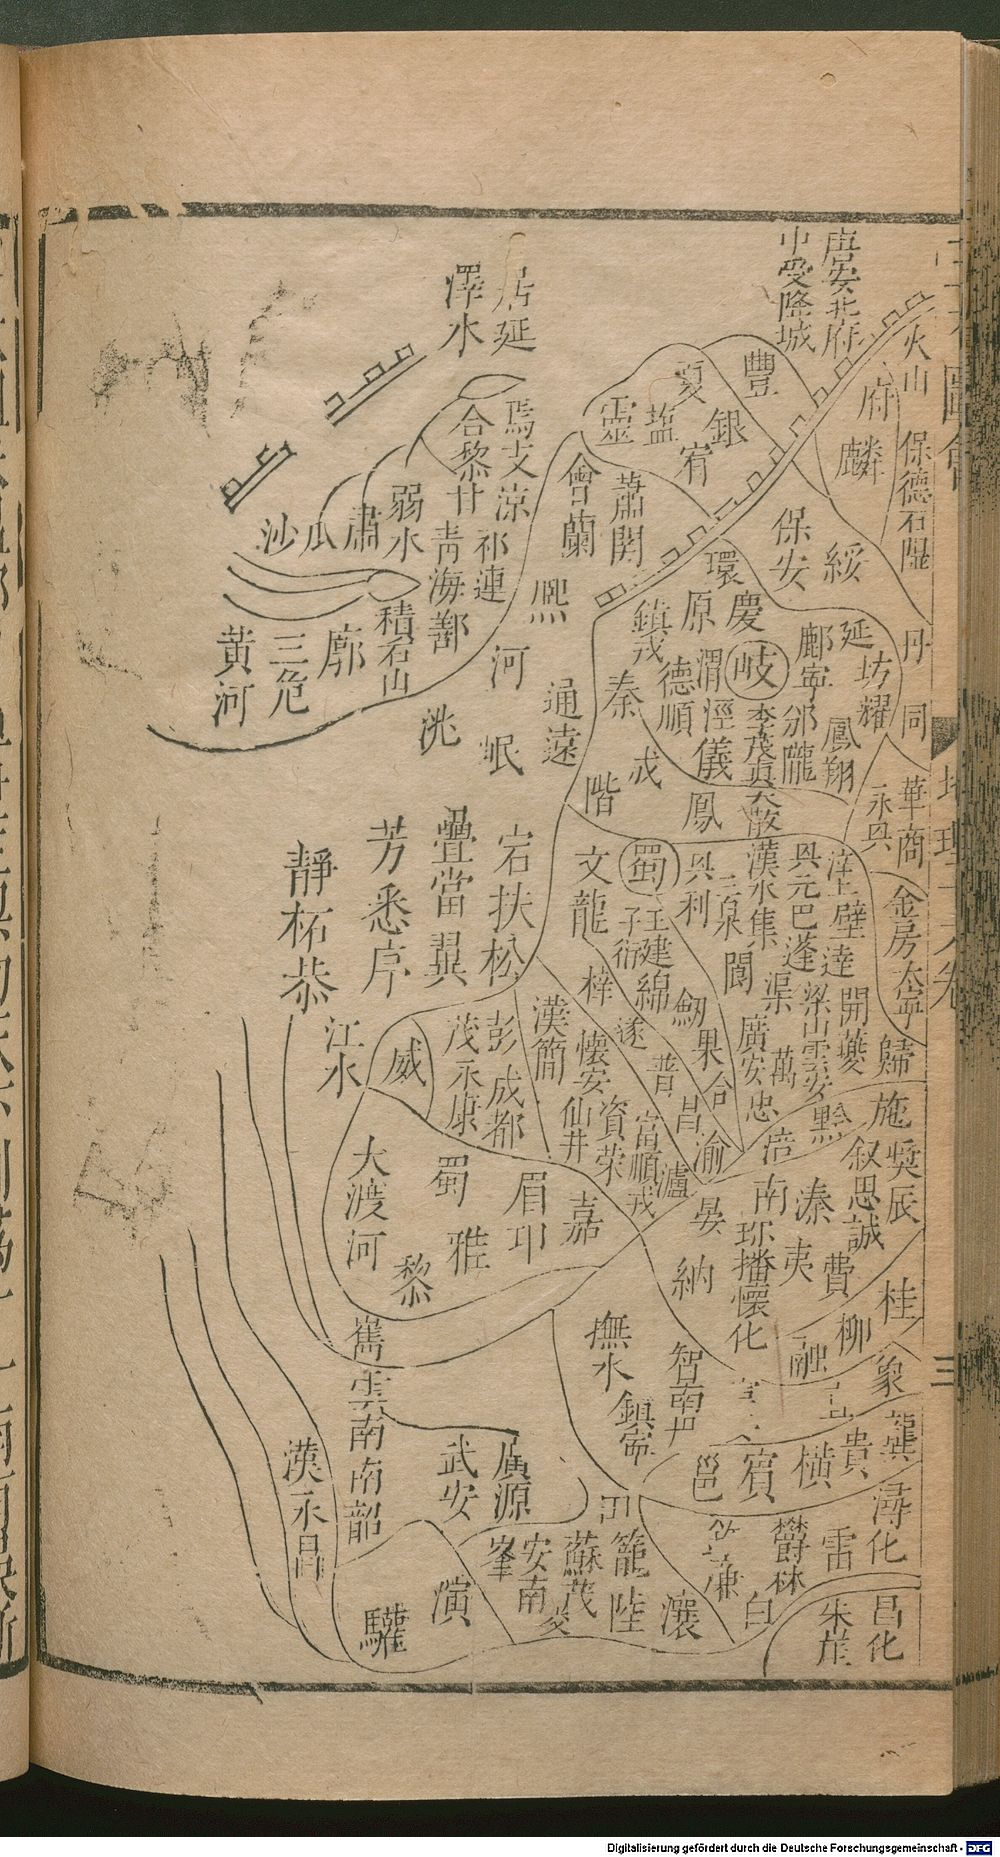 唐安北府
中受降城
火山
府
麟
保德石隰
豐
夏
銀
塩
靈
宥
居延
澤水
焉支
合黎
甘
涼
弱水
肅
瓜
沙
青海
祁連
鄯
積石山
廓
三危
黃河
會
蘭
蕭関
熈
河
洮
岷
通遠
保安
綏
環
慶
原
鎮戎
德順
渭
涇
儀
岐
李茂貞
鄜
寧
邠
隴
延
坊
耀
鳳翔
丹
同
秦
成
階
鳳
大散
華
商
永興
蜀
王建
子衍
文
龍
興
利
三泉
漢水
集
閬
興元
巴
蓬
渠
洋
壁
達
梁山
雲安
開
夔
金
房
大寧
歸
宕
扶
松
疊
當
翼
芳
悉
序
靜
柘
恭
江水
威
茂
永康
彭
成都
漢
簡
懷安
仙井
資
荣
梓
綿
遂
普
昌
富順
戎
瀘
劔
果
合
渝
廣安
忠
萬
涪
黔
施
叙
思
誠
獎
辰
大渡河
蜀
雅
黎
眉
卭
嘉
晏
納
南
珎
播
懷化
溱
夷
費
柳
桂
融
象
撫水
鎮寧
智
嶲
雲南
南詔
漢永昌
武安
廣源
邕
賓
橫
貴
龔
潯
化
田
籠
蘇茂
陸
安南
峯
演
驩
瀼
廉
白
欝林
雷
朱崖
昌化
地理十六卷
三
Digitalisierung gefördert durch die Deutsche Forschungsgemeinschaft - DFG